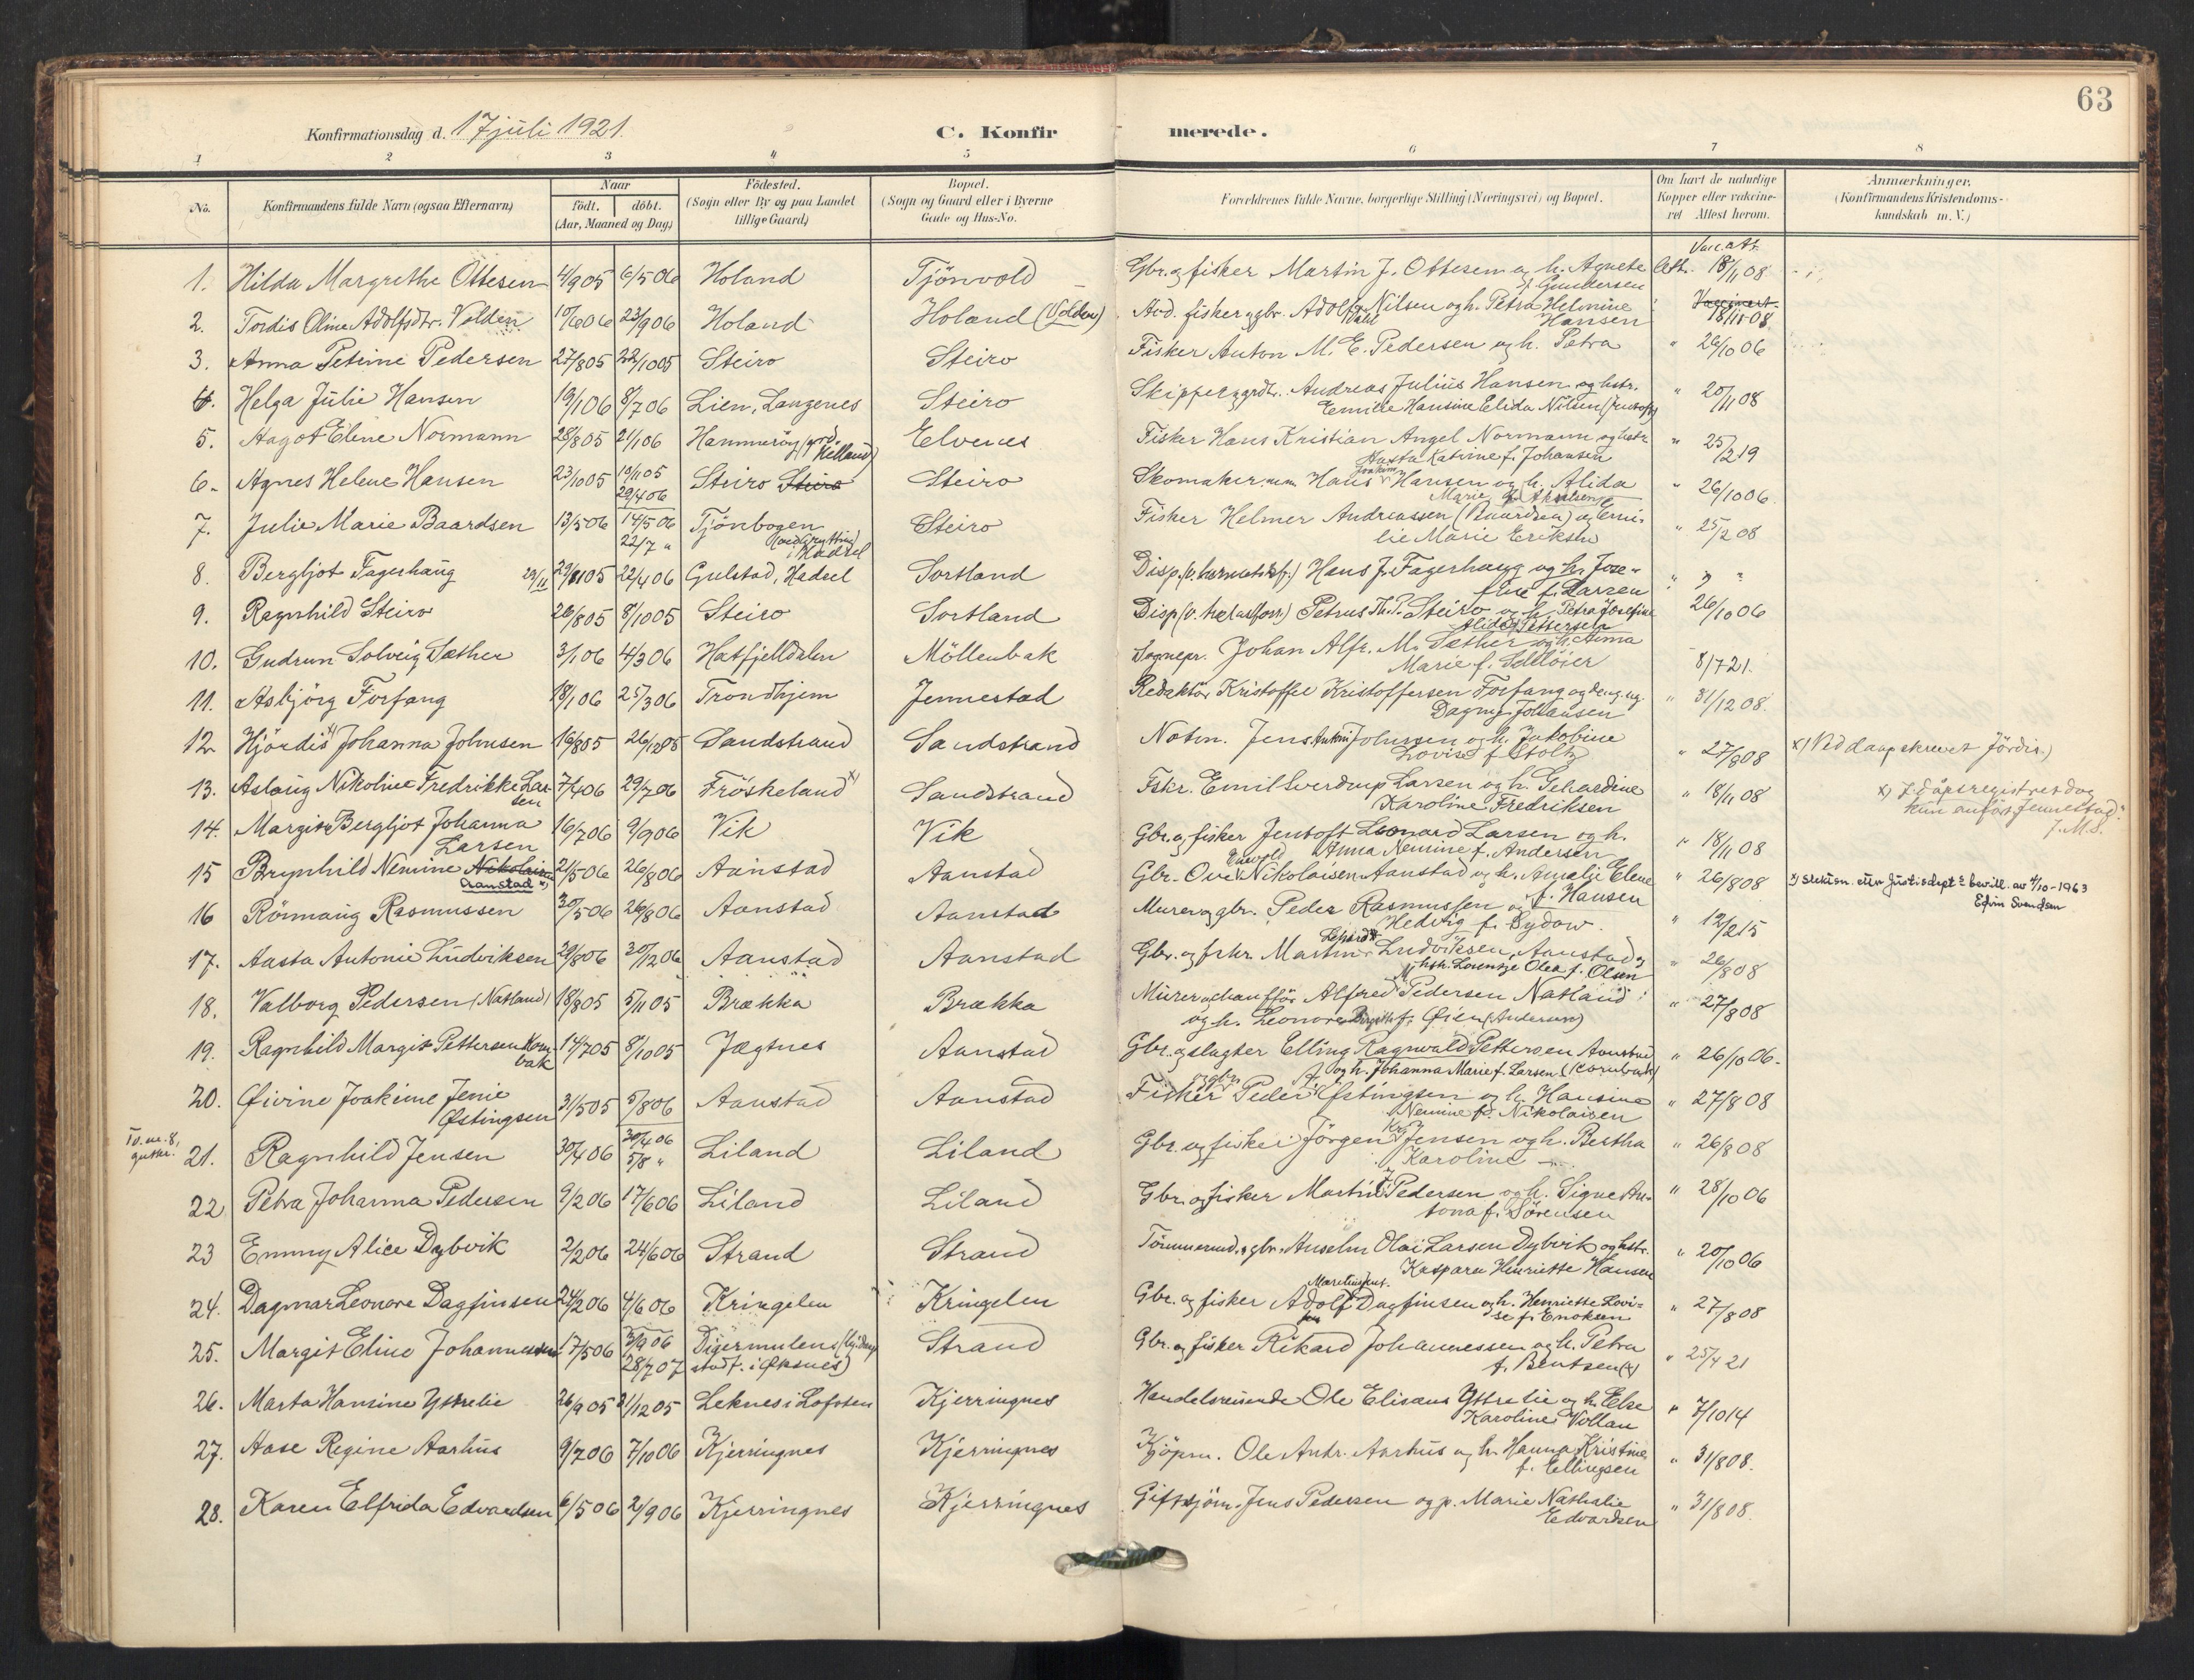 63
Konfirmationsdag d. 17 juli 1921.
C. Konfirmerede.
1 2 3 4 5 6 7 8
No.
Konfirmandens fulde Navn (ogsaa Efternavn)
Naar
födt. döbt.
(Aar, Maaned og Dag)
Födested.
(Sogn eller By og paa Landet
tillige Gaard)
Bopæl.
(Sogn og Gaard eller i Byerne
Gade og Hus-No.
Forældrenes fulde Navne, borgerlige Stilling (Næringsvei) og Bopæl.
Om havt de naturlige
Kopper eller vakcine-
ret Attest herom.
Anmærkninger.
(Konfirmandens Kristendoms-
kundskab m. V.)
Vacc. att.
1. Hilda Margrethe Ottesen 4/9 05 6/5 06 Holand Tjönvold Gbr. og fisker Martin J. Ottesen og h. Agnete Att. 18/11 08
f. Gundersen
2. Tordis Oline Adolfsdtr. Volden 10/6 06 23/9 06 Holand Holand (Volden) Avd. fisker og gbr. Adolf Nilsen og h. Petra Helmine
Hansen 18/11 08
3. Anna Petrine Pedersen 27/8 05 22/10 05 Steiro Steiro Fisker Anton M. E. Pedersen og h. Petra " 26/10 06
4. Helga Julie Hansen 19/1 06 8/7 06 Lien, Langenes Steiro Skipper og grdr. Andreas Julius Hansen og hstr. " 20/11 08
Emilie Hansine Elida Nilsen (Jentoft)
5. Aagot Elene Normann 28/8 05 21/1 06 Hammerøy (grd. Elvenes Fisker Hans Kristian Angel Normann og hstr. " 25/2 19
Aasta Katrine f. Johansen
6. Agnes Helene Hansen 23/10 05 19/11 05 Steiro Steiro Steiro Skomaker m.m. Hans Joakim Hansen og h. Alida " 26/10 06
29/4 06
7. Julie Marie Baardsen 13/5 06 14/5 06 Tjönbogen Steiro Fisker Helmer Andreassen (Baardsen) og Emi- " 25/2 08
22/7 " i Hadsel lie Marie Eriksen
8. Bergljot Fagerhaug 29/11 05 22/4 06 Gulstad, Hadsel Sortland Hans J. Fagerhaug og h. Jose- " " "
fine f. Larsen
9. Ragnhild Steiro 26/8 05 8/10 05 Steiro Sortland Petrus Th. P. Steiro og h. Petra Josefine 26/10 06
Alida Pettersen
10. Gudrun Solveig Sæther 3/1 06 4/3 06 Hatfjelldalen Möllenbak Sognepr. Johan Alfr. M. Sæther og h. Anna 8/7 21.
Marie f. Seltlöier
11. Asbjörg Forfang 18/1 06 25/3 06 Trondhjem Jennestad Redaktör Kristoffer Kristoffersen Forfang og " 31/12 08.
Dagny Johansen
12. Hjördis x) Johanna Johnsen 16/8 05 26/12 05 Sandstrand Sandstrand Notm. Jens Anton Johnsen og h. Jakobine " 27/8 08 x) Ved daap skrevet Jördis.)
Lovise f. Stoltz
13. Aslaug Nikoline Fredrikke Lar- 7/4 06 29/7 06 Fröskeland x) Sandstrand Fskr. Emil Sverdrup Larsen og h. Gerhardine " 18/11 08 x) I dåpsregistret dog
sen Karoline Fredriksen kun anført Jennestad."
J.M.S.
14. Margit Bergljot Johanna 16/7 06 9/9 06 Vik Vik Gbr. og fisker Jentoft Leonard Larsen og h. " 18/11 08
Larsen Anna Nemine f. Andersen
15 Brynhild Nemine Nikolaisen 21/5 06 26/8 06 Aanstad Aanstad Gbr. Ove Nikolaisen Aanstad og h. Amalie Elene " 26/8 08 x) slektsn. etter Justisdept's bevill. av 4/10-1963
Aanstad x) f. Hansen Edvin Svendsen
16 Rönnaug Rasmussen 30/5 06 26/8 06 Aanstad Aanstad Murer og gbr. Peder Rasmussen og " 12/2 15
Hedvig f. Sydow.
17. Aasta Antonie Ludviksen 29/8 06 30/12 06 Aanstad Aanstad Gbr. og fskr. Martin Ludviksen, Aanstad og " 26/8 08
hstr. Lorentze Olea f. Olsen
18. Valborg Pedersen (Natland) 18/8 05 5/11 05 Brækka Brækka Murer og chaufför Alfred Pedersen Natland " 27/8 08
og h. Leonore Birgitte f. Øien (Andersen)
19. Ragnhild Margit Pettersen Korn- 14/7 05 8/10 05 Jægtnes Aanstad Gbr. og slagter Elling Ragnvald Pettersen Aanstad " 26/10 06.
bak og h. Johanna Marie f. Larsen (Kornbak)
20. Øivine Joakime Jenie 31/5 05 5/8 06 Aanstad Aanstad Fisker og gbr. Peder A. Østingsen og h. Hansine " 27/8 08
Østingsen Nemine f. Nikolaisen
Tv. nr. 8,
gutter.
21. Ragnhild Jensen 30/4 06 30/4 06 Liland Liland Gbr. og fisker Jörgen Kr. Jensen og h. Bertha " 26/8 08
5/8 " Karoline
22 Petra Johanna Pedersen 9/2 06 17/6 06 Liland Liland Gbr. og fisker Martin J. Pedersen og h. Signe An- " 28/10 06
tona f. Sörensen
23 Emmy Alice Dybvik 2/2 06 24/6 06 Strand Strand Tömmermd. og gbr. Anselm Olai Larsen Dybvik og hstr. " 20/10 06
Kaspara Henriette Hansen
24. Dagmar Leonore Dagfinsen 24/2 06 4/6 06 Kringelen Kringelen Gbr. og fisker Adolf Dagfinsen og h. Henriette Lovi- " 27/8 08
se f. Enoksen
25. Margit Eline Johannessen 17/5 06 3/9 06 Digermulen Strand Gbr. og fisker Rikard Johannessen og h. Petra " 25/4 21
28/7 07 i Øksnes) f. Bentsen (x)
26. Marta Hansine Yttrelie 26/9 05 31/12 05 Leknes i Lofoten Kjerringnes Handelsreisende Ole Elisæus Yttrelie og h. Else " 7/10 14
Karoline Vollan
27. Aase Regine Aarhus 9/7 06 7/10 06 Kjerringnes Kjerringnes Kjöpm. Ole Andr. Aarhus og h. Hanna Kristine " 31/8 08.
f. Ellingsen
28. Karen Elfrida Edvardsen 6/5 06 2/9 06 Kjerringnes Kjerringnes Gift sjöm. Jens Pedersen og p. Marie Nathalie " 31/8 08.
Edvardsen